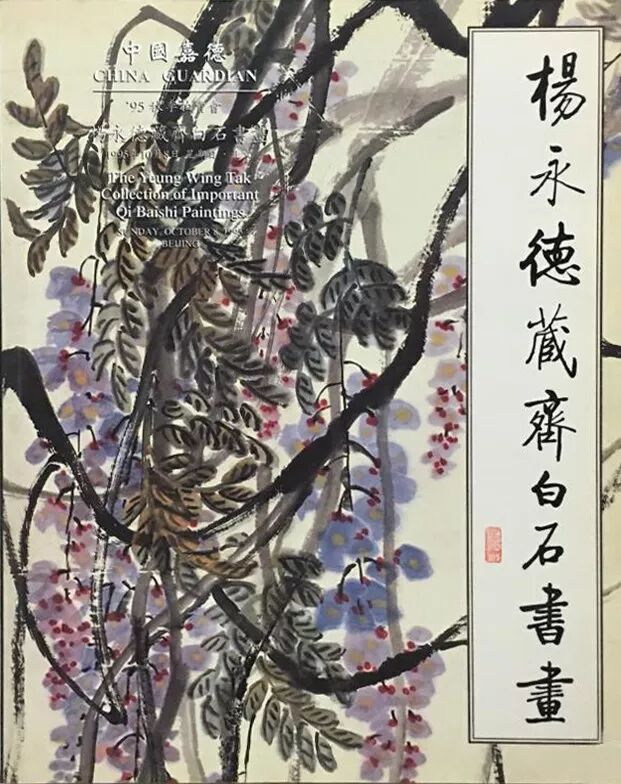 中國嘉德
CHINA GUARDIAN
'95 秋季拍賣會
楊永德藏齊白石書畫
1995年10月8日 星期日·北京
The Yeung Wing Tak
Collection of Important
Qi Baishi Paintings
SUNDAY, OCTOBER 8, 1995
BEIJING
楊永德藏齊白石書畫